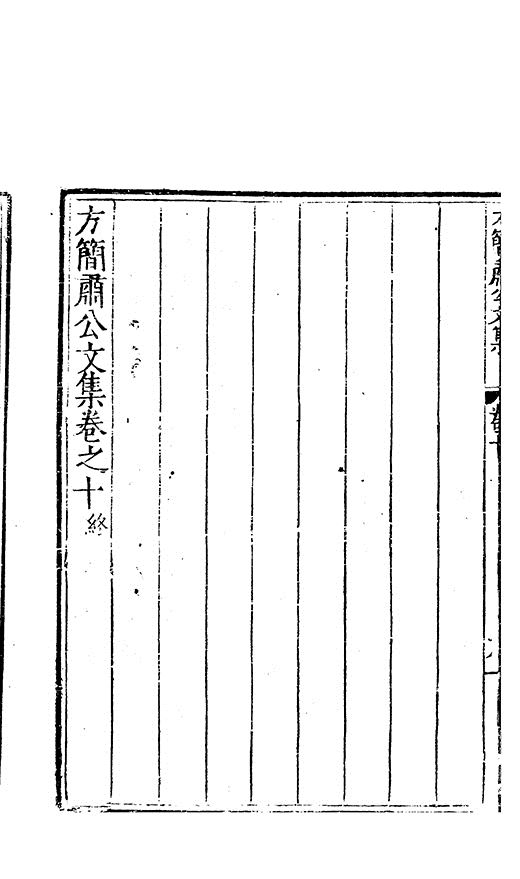 方簡肅公文集
卷十
方簡肅公文集卷之十終